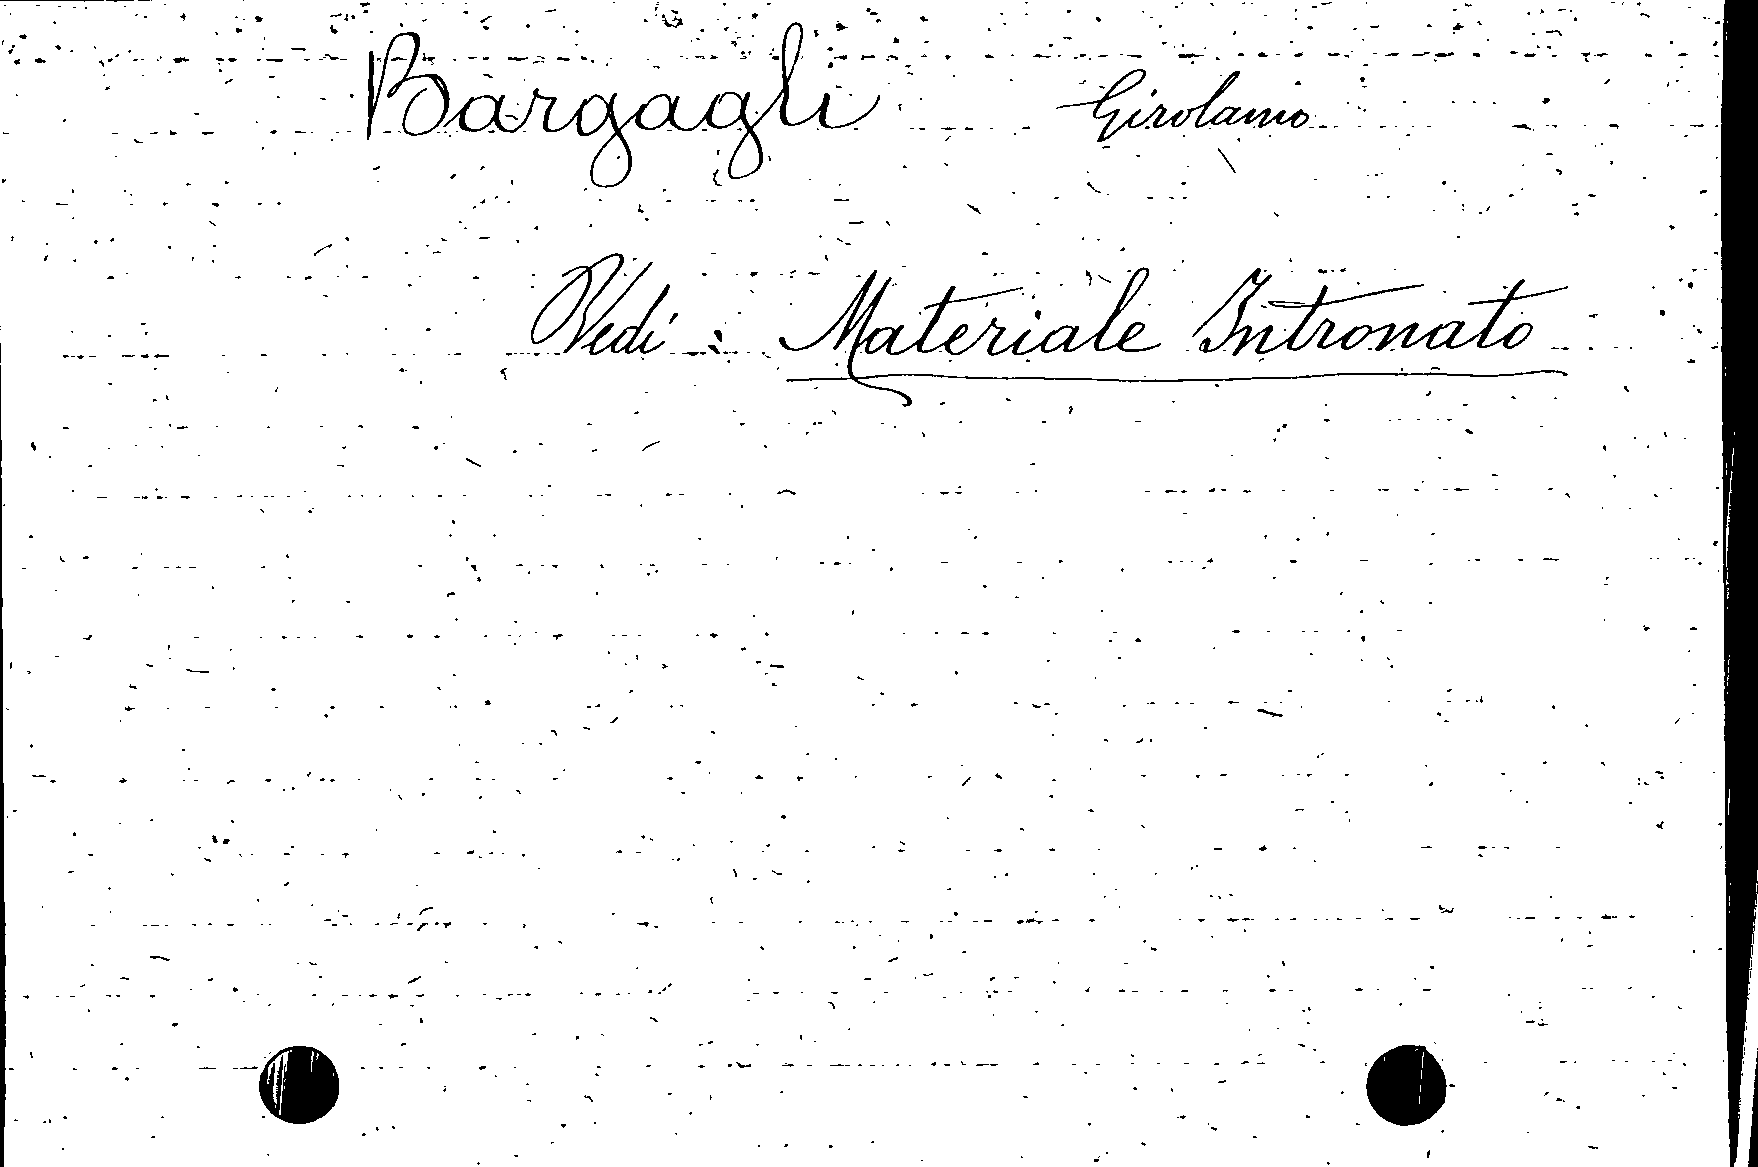 Bargagli Girolamo
Vedi : Materiale Intronato